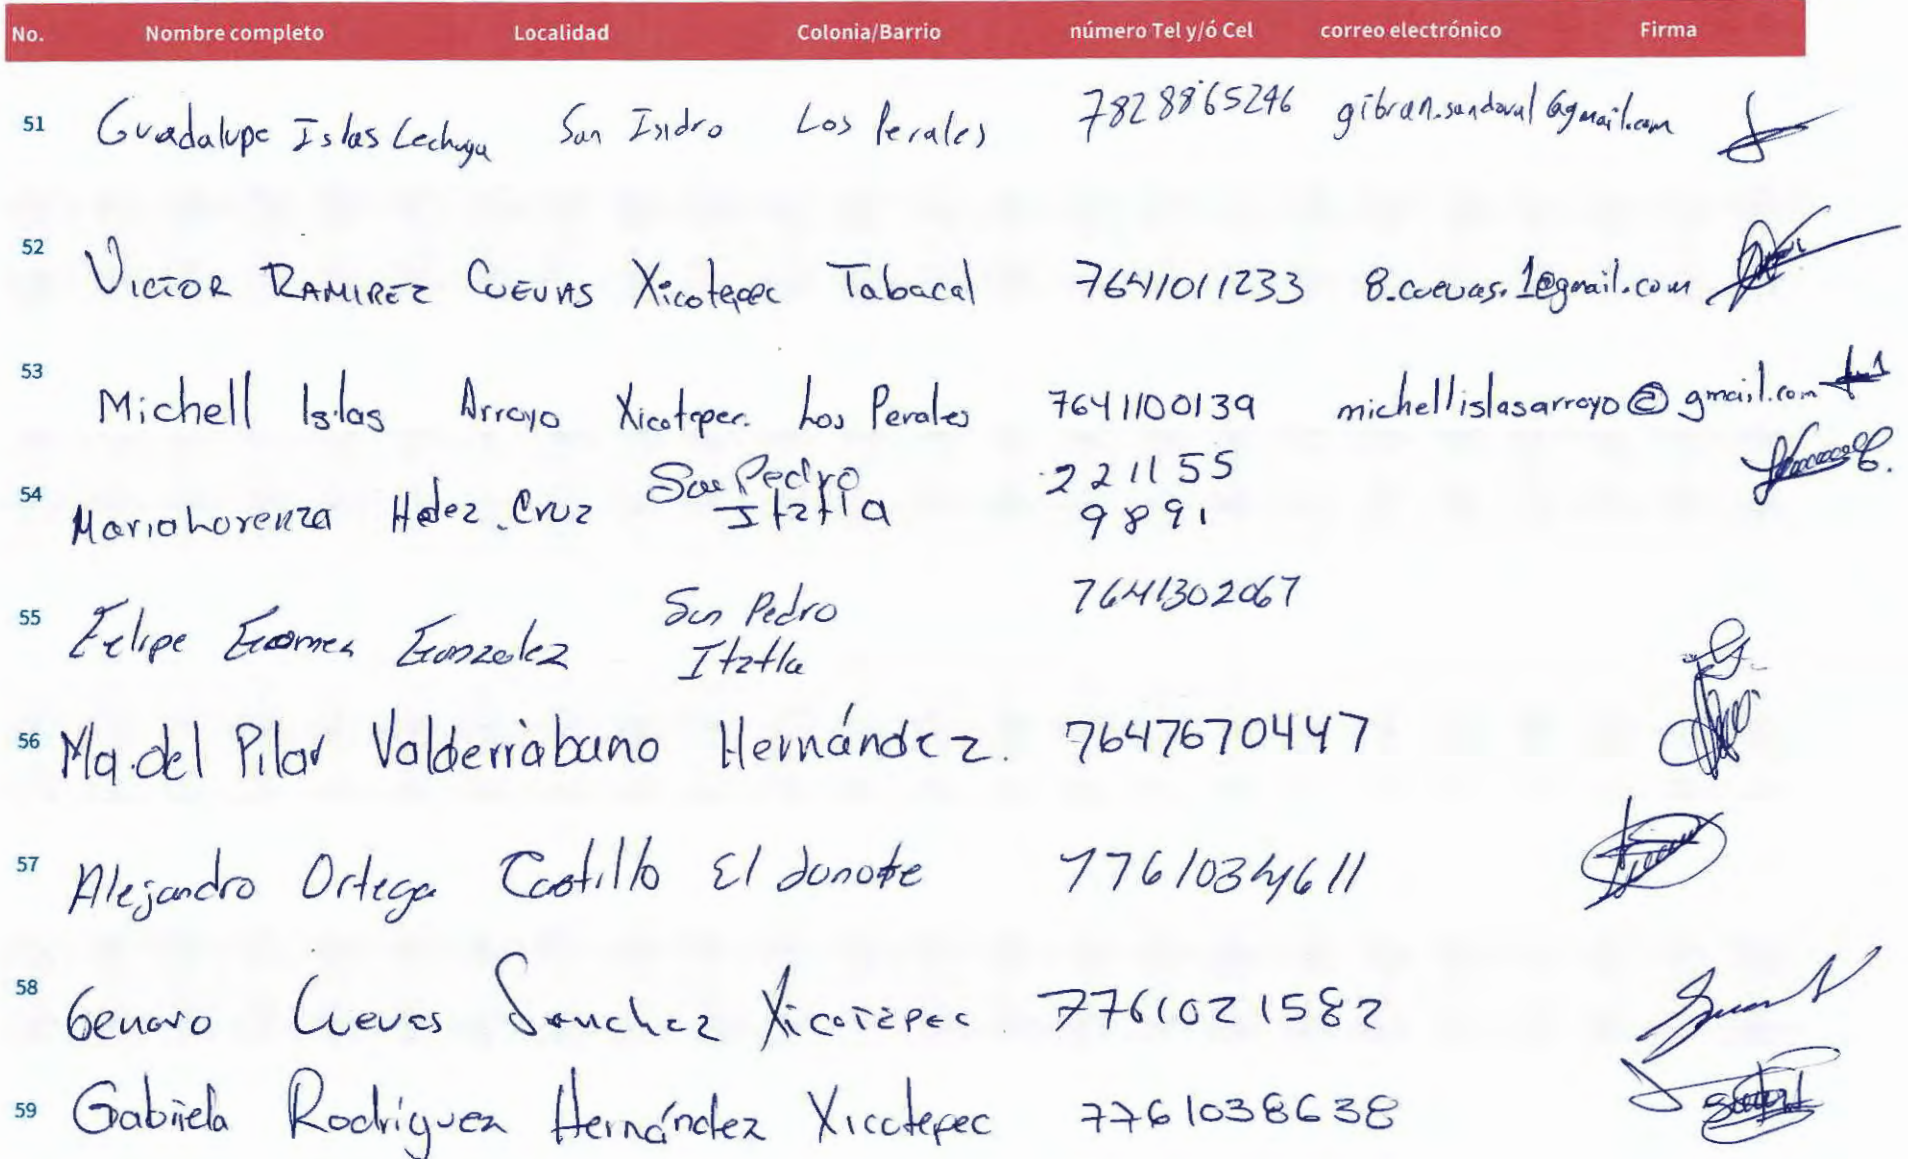 No. Nombre completo Localidad Colonia/Barrio número Tel y/ó Cel correo electrónico Firma
51 Guadalupe Islas Lechuga San Isidro Los Perales 7828865246 gibran.sandoval@gmail.com
52 VICTOR RAMIREZ CUEVAS Xicotepec Tabacal 7641011233 8.cuevas.1@gmail.com
53 Michell Islas Arroyo Xicotepec Los Perales 7641100139 michellislasarroyo@gmail.com
54 Maria Lorenza Hdez. Cruz San Pedro Itztla 221155 9891
55 Felipe Gomez Gonzalez San Pedro Itztla 7641302067
56 Ma. del Pilar Valderrabano Hernández. 7647670447
57 Alejandro Ortega Castillo El 7761034611
58 Genaro Cuevas Sanchez Xicotepec 7761021582
59 Gabriela Rodríguez Hernández Xicotepec 7761038638